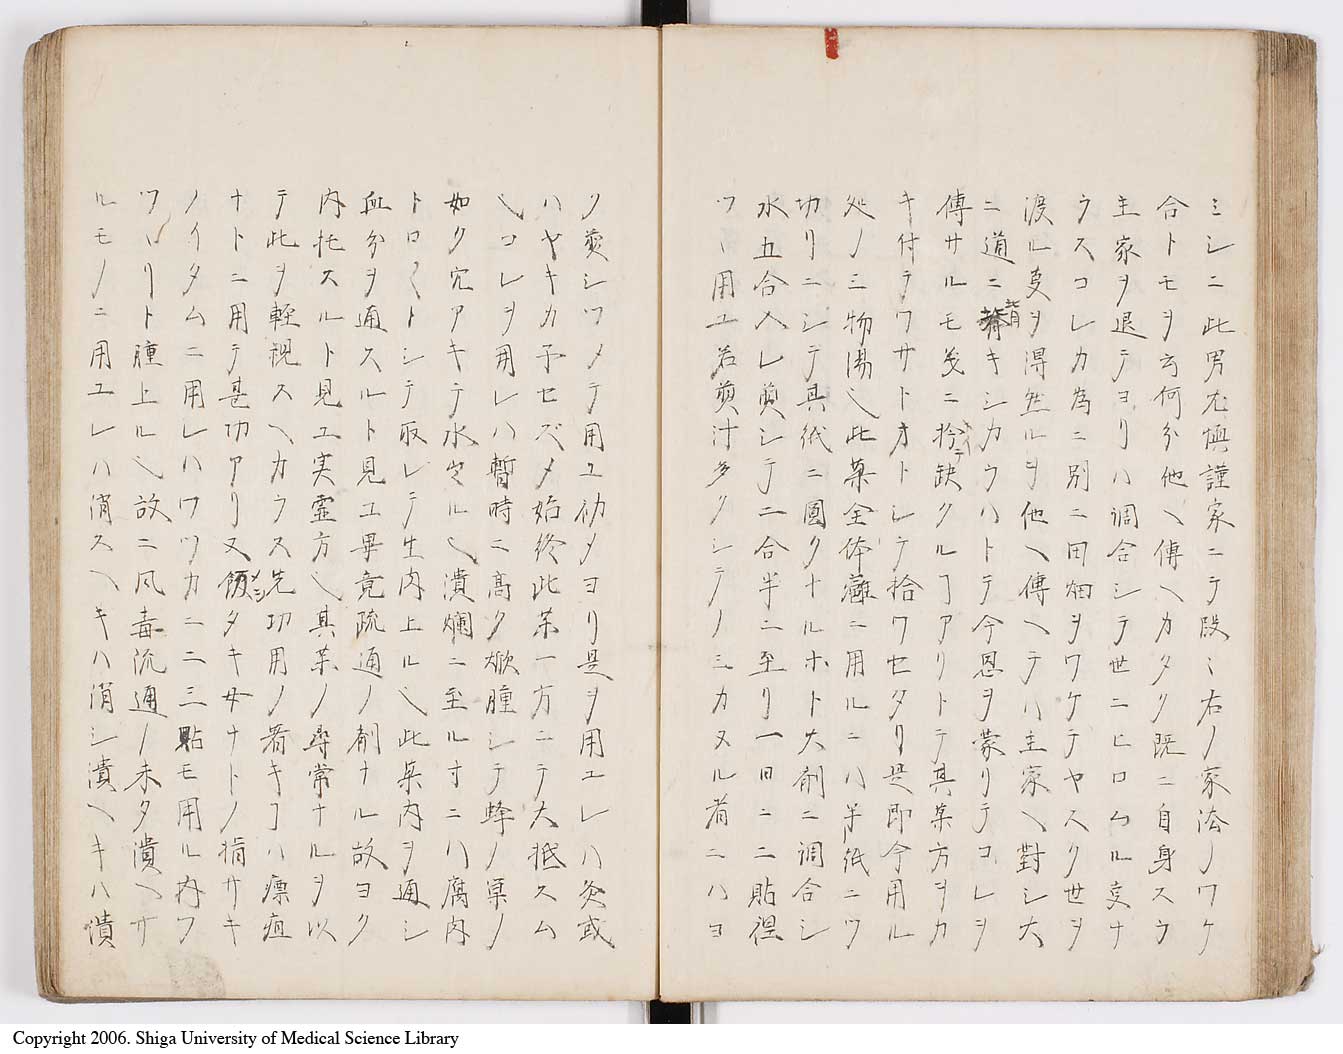 ミシニ此男尤慎謹家ニテ段ミ右ノ家法ノワケ
合トモヲ云何分他ヘ傳ヘカタク既ニ自身スラ
主家ヲ退テヨリハ調合シテ世ニヒロムル叓ナ
ラスコレカ為ニ別ニ田畑ヲワケテヤスク世ヲ
渡ル叓ヲ得然ルヲ他ヘ傳ヘテハ主家ヘ對シ大
ニ道ニ背キシカウハトテ今恩ヲ蒙リテコレヲ
傳サルモ茂ニ拾缺クルヿアリトテ其薬方ヲカ
キ付テワサトオトシテ拾ワセタリ是即今用ル
処ノ三物湯也此薬全体癰ニ用ルニハ半紙ニツ
切リニシテ其紙ニ圓クナルホト大剤ニ調合シ
水五合入レ煎シテ二合半ニ至リ一日ニ二貼程
ツヽ用ユ若煎汁多クシテノミカヌル者ニハヨ
ク煎シツメテ用ユ初メヨリ是ヲ用ユレハ灸或
ハヤキカ子セズメ始終此薬一方ニテ大抵スム
也コレヲ用レハ暫時ニ高ク焮腫シテ蜂ノ巣ノ
如ク穴アキテ水出ル也潰爛ニ至ル寸ニハ腐肉
トロ〱トシテ取レテ生肉上ル也此薬内ヲ通シ
血分ヲ通スルト見ユ畢竟疏通ノ剤ナル故ヨク
内托スルト見ユ実霊方也其薬ノ尋常ナルヲ以
テ此ヲ軽視スヘカラス先功用ノ著キヿハ瘭疽
ナトニ用テ甚功アリ又飯タキ女ナトノ指サキ
ノイタムニ用レハワツカニ二三貼モ用ル内フ
ワ〱リト腫上ル也故ニ風毒流通ノ未タ潰ヘサ
ルモノニ用ユレハ消スヘキハ消シ潰ヘキハ潰
Copyright 2006. Shiga University of Medical Science Library